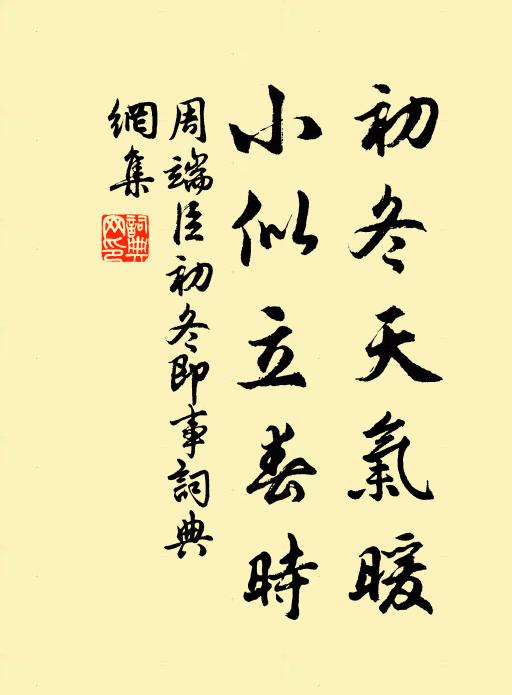 初冬天氣暖
小似立春時
周端臣初冬即事詞典
網集
詞典
网印